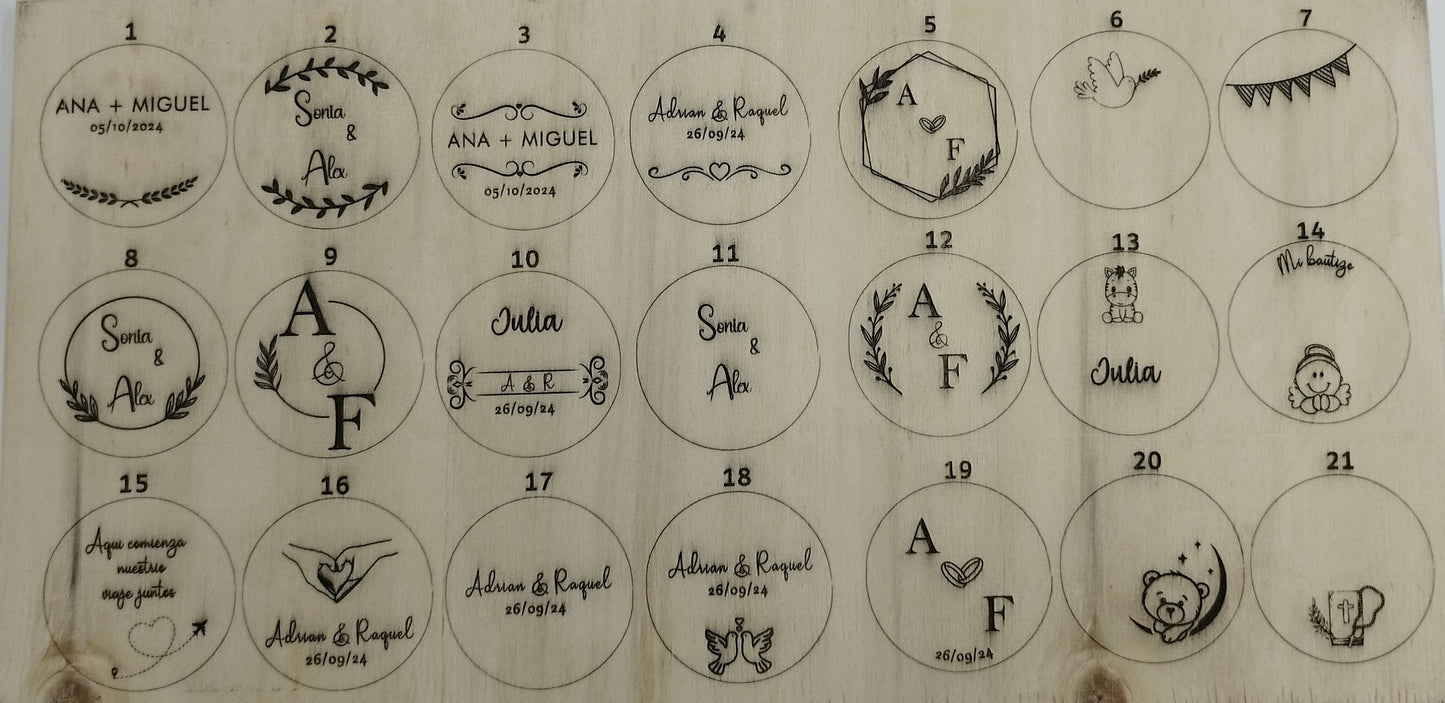 1
ANA + MIGUEL
05/10/2024
2
Sonia
&
Alex
3
ANA + MIGUEL
05/10/2024
4
Adrian & Raquel
26/09/24
5
A
F
6
7
8
Sonia
&
Alex
9
A
&
F
10
Julia
A & R
26/09/24
11
Sonia
&
Alex
12
A
&
F
13
Julia
14
Mi bautizo
15
Aqui comienza
nuestro
viaje juntos
16
Adrian & Raquel
26/09/24
17
Adrian & Raquel
26/09/24
18
Adrian & Raquel
26/09/24
19
A
F
26/09/24
20
21